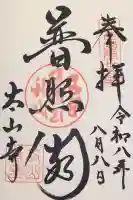 奉拝
令和八年
八月八日
普照
太山寺